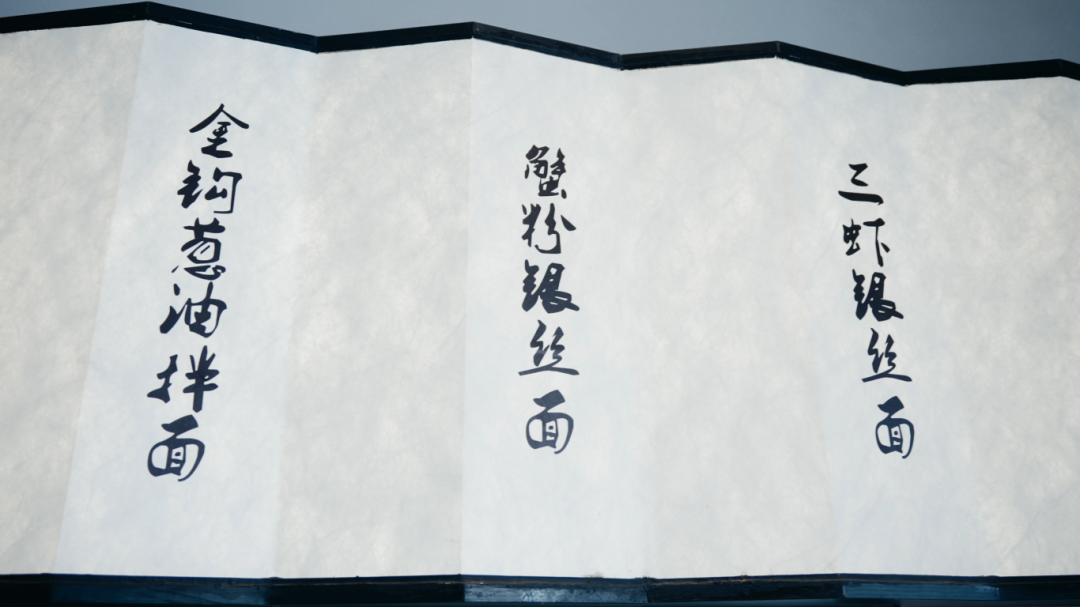 金钩葱油拌面
蟹粉银丝面
三虾银丝面